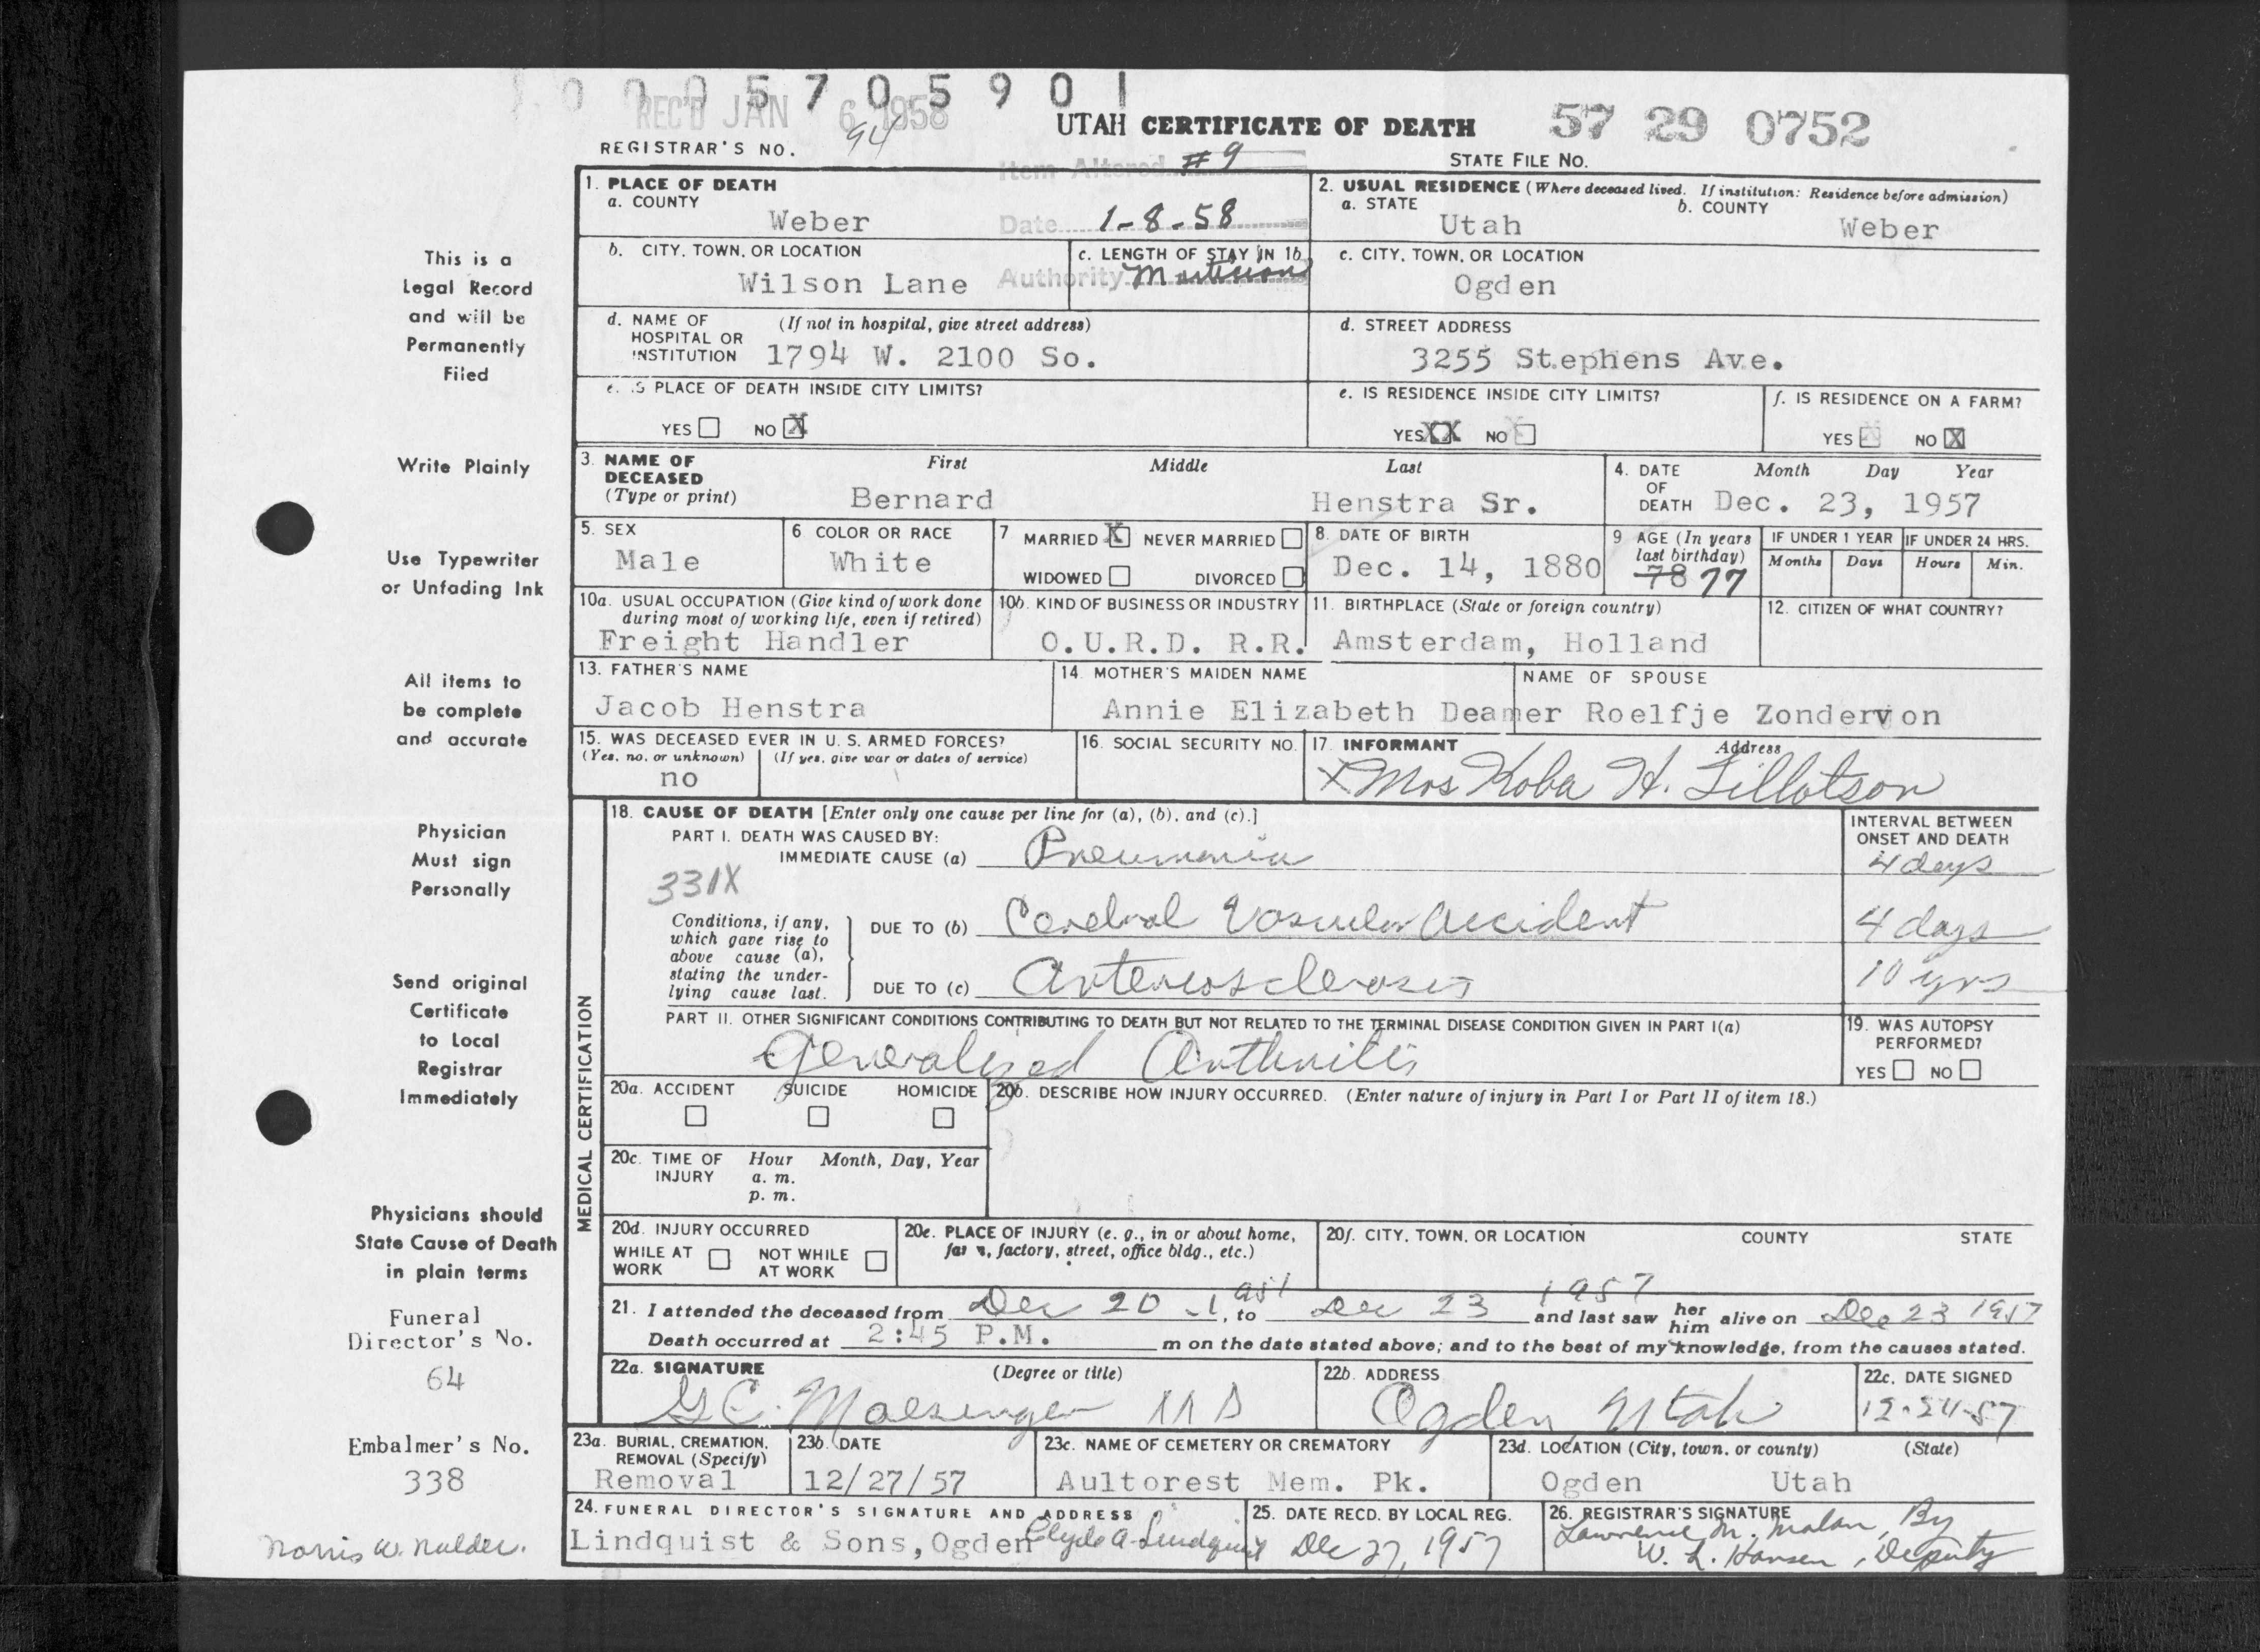 0005705901
REC'D JAN 6 1958
UTAH CERTIFICATE OF DEATH
57 29 0752
REGISTRAR'S NO. 94
STATE FILE NO.
Item Altered #9
Date 1-8-58
Authority
1. PLACE OF DEATH
a. COUNTY
Weber
2. USUAL RESIDENCE (Where deceased lived. If institution: Residence before admission)
a. STATE
Utah
b. COUNTY
Weber
b. CITY, TOWN, OR LOCATION
Wilson Lane
c. LENGTH OF STAY IN 1b
c. CITY, TOWN, OR LOCATION
Ogden
d. NAME OF HOSPITAL OR INSTITUTION
(If not in hospital, give street address)
1794 W. 2100 So.
d. STREET ADDRESS
3255 Stephens Ave.
e. IS PLACE OF DEATH INSIDE CITY LIMITS?
YES NO X
e. IS RESIDENCE INSIDE CITY LIMITS?
YES XX NO
f. IS RESIDENCE ON A FARM?
YES NO X
3. NAME OF DECEASED
(Type or print)
First Middle Last
Bernard Henstra Sr.
4. DATE OF DEATH
Month Day Year
Dec. 23, 1957
5. SEX
Male
6 COLOR OR RACE
White
7 MARRIED X NEVER MARRIED
WIDOWED DIVORCED
8. DATE OF BIRTH
Dec. 14, 1880
9 AGE (In years last birthday)
78 77
IF UNDER 1 YEAR
Months Days
IF UNDER 24 HRS.
Hours Min.
10a. USUAL OCCUPATION (Give kind of work done during most of working life, even if retired)
Freight Handler
10b. KIND OF BUSINESS OR INDUSTRY
O.U.R.D. R.R.
11. BIRTHPLACE (State or foreign country)
Amsterdam, Holland
12. CITIZEN OF WHAT COUNTRY?
13. FATHER'S NAME
Jacob Henstra
14. MOTHER'S MAIDEN NAME
Annie Elizabeth Deamer
NAME OF SPOUSE
Roelfje Zondervon
15. WAS DECEASED EVER IN U. S. ARMED FORCES?
(Yes, no, or unknown) (If yes, give war or dates of service)
no
16. SOCIAL SECURITY NO.
17. INFORMANT Address
X Mrs Koba H. Tillotson
MEDICAL CERTIFICATION
18. CAUSE OF DEATH [Enter only one cause per line for (a), (b), and (c).]
PART I. DEATH WAS CAUSED BY:
IMMEDIATE CAUSE (a) Pneumonia
INTERVAL BETWEEN ONSET AND DEATH
4 days
331X
Conditions, if any, which gave rise to above cause (a), stating the underlying cause last.
DUE TO (b) Cerebral Vascular Accident
4 days
DUE TO (c) Arteriosclerosis
10 yrs
PART II. OTHER SIGNIFICANT CONDITIONS CONTRIBUTING TO DEATH BUT NOT RELATED TO THE TERMINAL DISEASE CONDITION GIVEN IN PART I(a)
Generalized Arthritis
19. WAS AUTOPSY PERFORMED?
YES NO
20a. ACCIDENT SUICIDE HOMICIDE
20b. DESCRIBE HOW INJURY OCCURRED. (Enter nature of injury in Part I or Part II of item 18.)
20c. TIME OF INJURY
Hour Month, Day, Year
a. m.
p. m.
20d. INJURY OCCURRED
WHILE AT WORK NOT WHILE AT WORK
20e. PLACE OF INJURY (e. g., in or about home, farm, factory, street, office bldg., etc.)
20f. CITY, TOWN, OR LOCATION COUNTY STATE
21. I attended the deceased from Dec 20 - 1951, to Dec 23 1957 and last saw her him alive on Dec 23 1957
Death occurred at 2:45 P.M. m on the date stated above; and to the best of my knowledge, from the causes stated.
22a. SIGNATURE (Degree or title)
G C. MD
22b. ADDRESS
Ogden Utah
22c. DATE SIGNED
12-24-57
23a. BURIAL, CREMATION, REMOVAL (Specify)
Removal
23b. DATE
12/27/57
23c. NAME OF CEMETERY OR CREMATORY
Aultorest Mem. Pk.
23d. LOCATION (City, town, or county) (State)
Ogden Utah
24. FUNERAL DIRECTOR'S SIGNATURE AND ADDRESS
Lindquist & Sons, Ogden Clyde A. Lindquist
25. DATE RECD. BY LOCAL REG.
Dec 27, 1957
26. REGISTRAR'S SIGNATURE
Lawrence M. Malan, By
W. L. Hansen, Deputy
This is a
Legal Record
and will be
Permanently
Filed
Write Plainly
Use Typewriter
or Unfading Ink
All items to
be complete
and accurate
Physician
Must sign
Personally
Send original
Certificate
to Local
Registrar
Immediately
Physicians should
State Cause of Death
in plain terms
Funeral
Director's No.
64
Embalmer's No.
338
Norris W. Nalder.